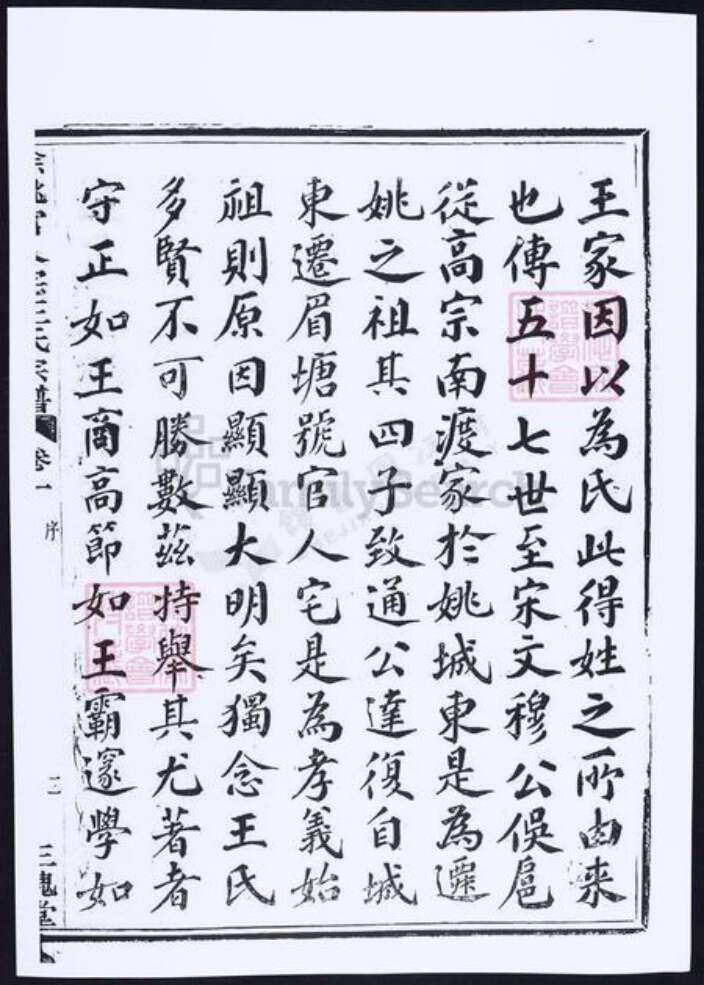 王家因以為氏此得姓之所由来
也傳五十七世至宋文穆公俣扈
從髙宗南渡家於姚城東是為遷
姚之祖其四子致通公達復自城
東遷眉塘號官人宅是為孝義始
祖則原因顯顯大明矣獨念王氏
多賢不可勝數茲特舉其尤著者
守正如王商高節如王霸邃學如
王氏宗譜
卷一
序
三
三槐堂
FamilySearch